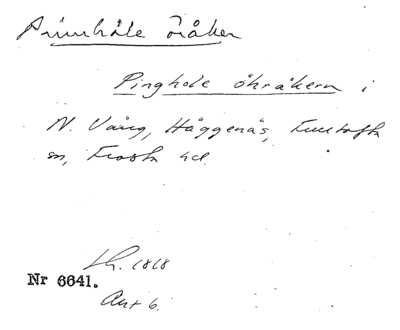 Pinnhåle öråker
Pinghole öhråkern i
N. Vång, Häggenäs, Fulltofta
sn, Frosta hd.
Lh. 1818
Nr 6641.
Akt 6.